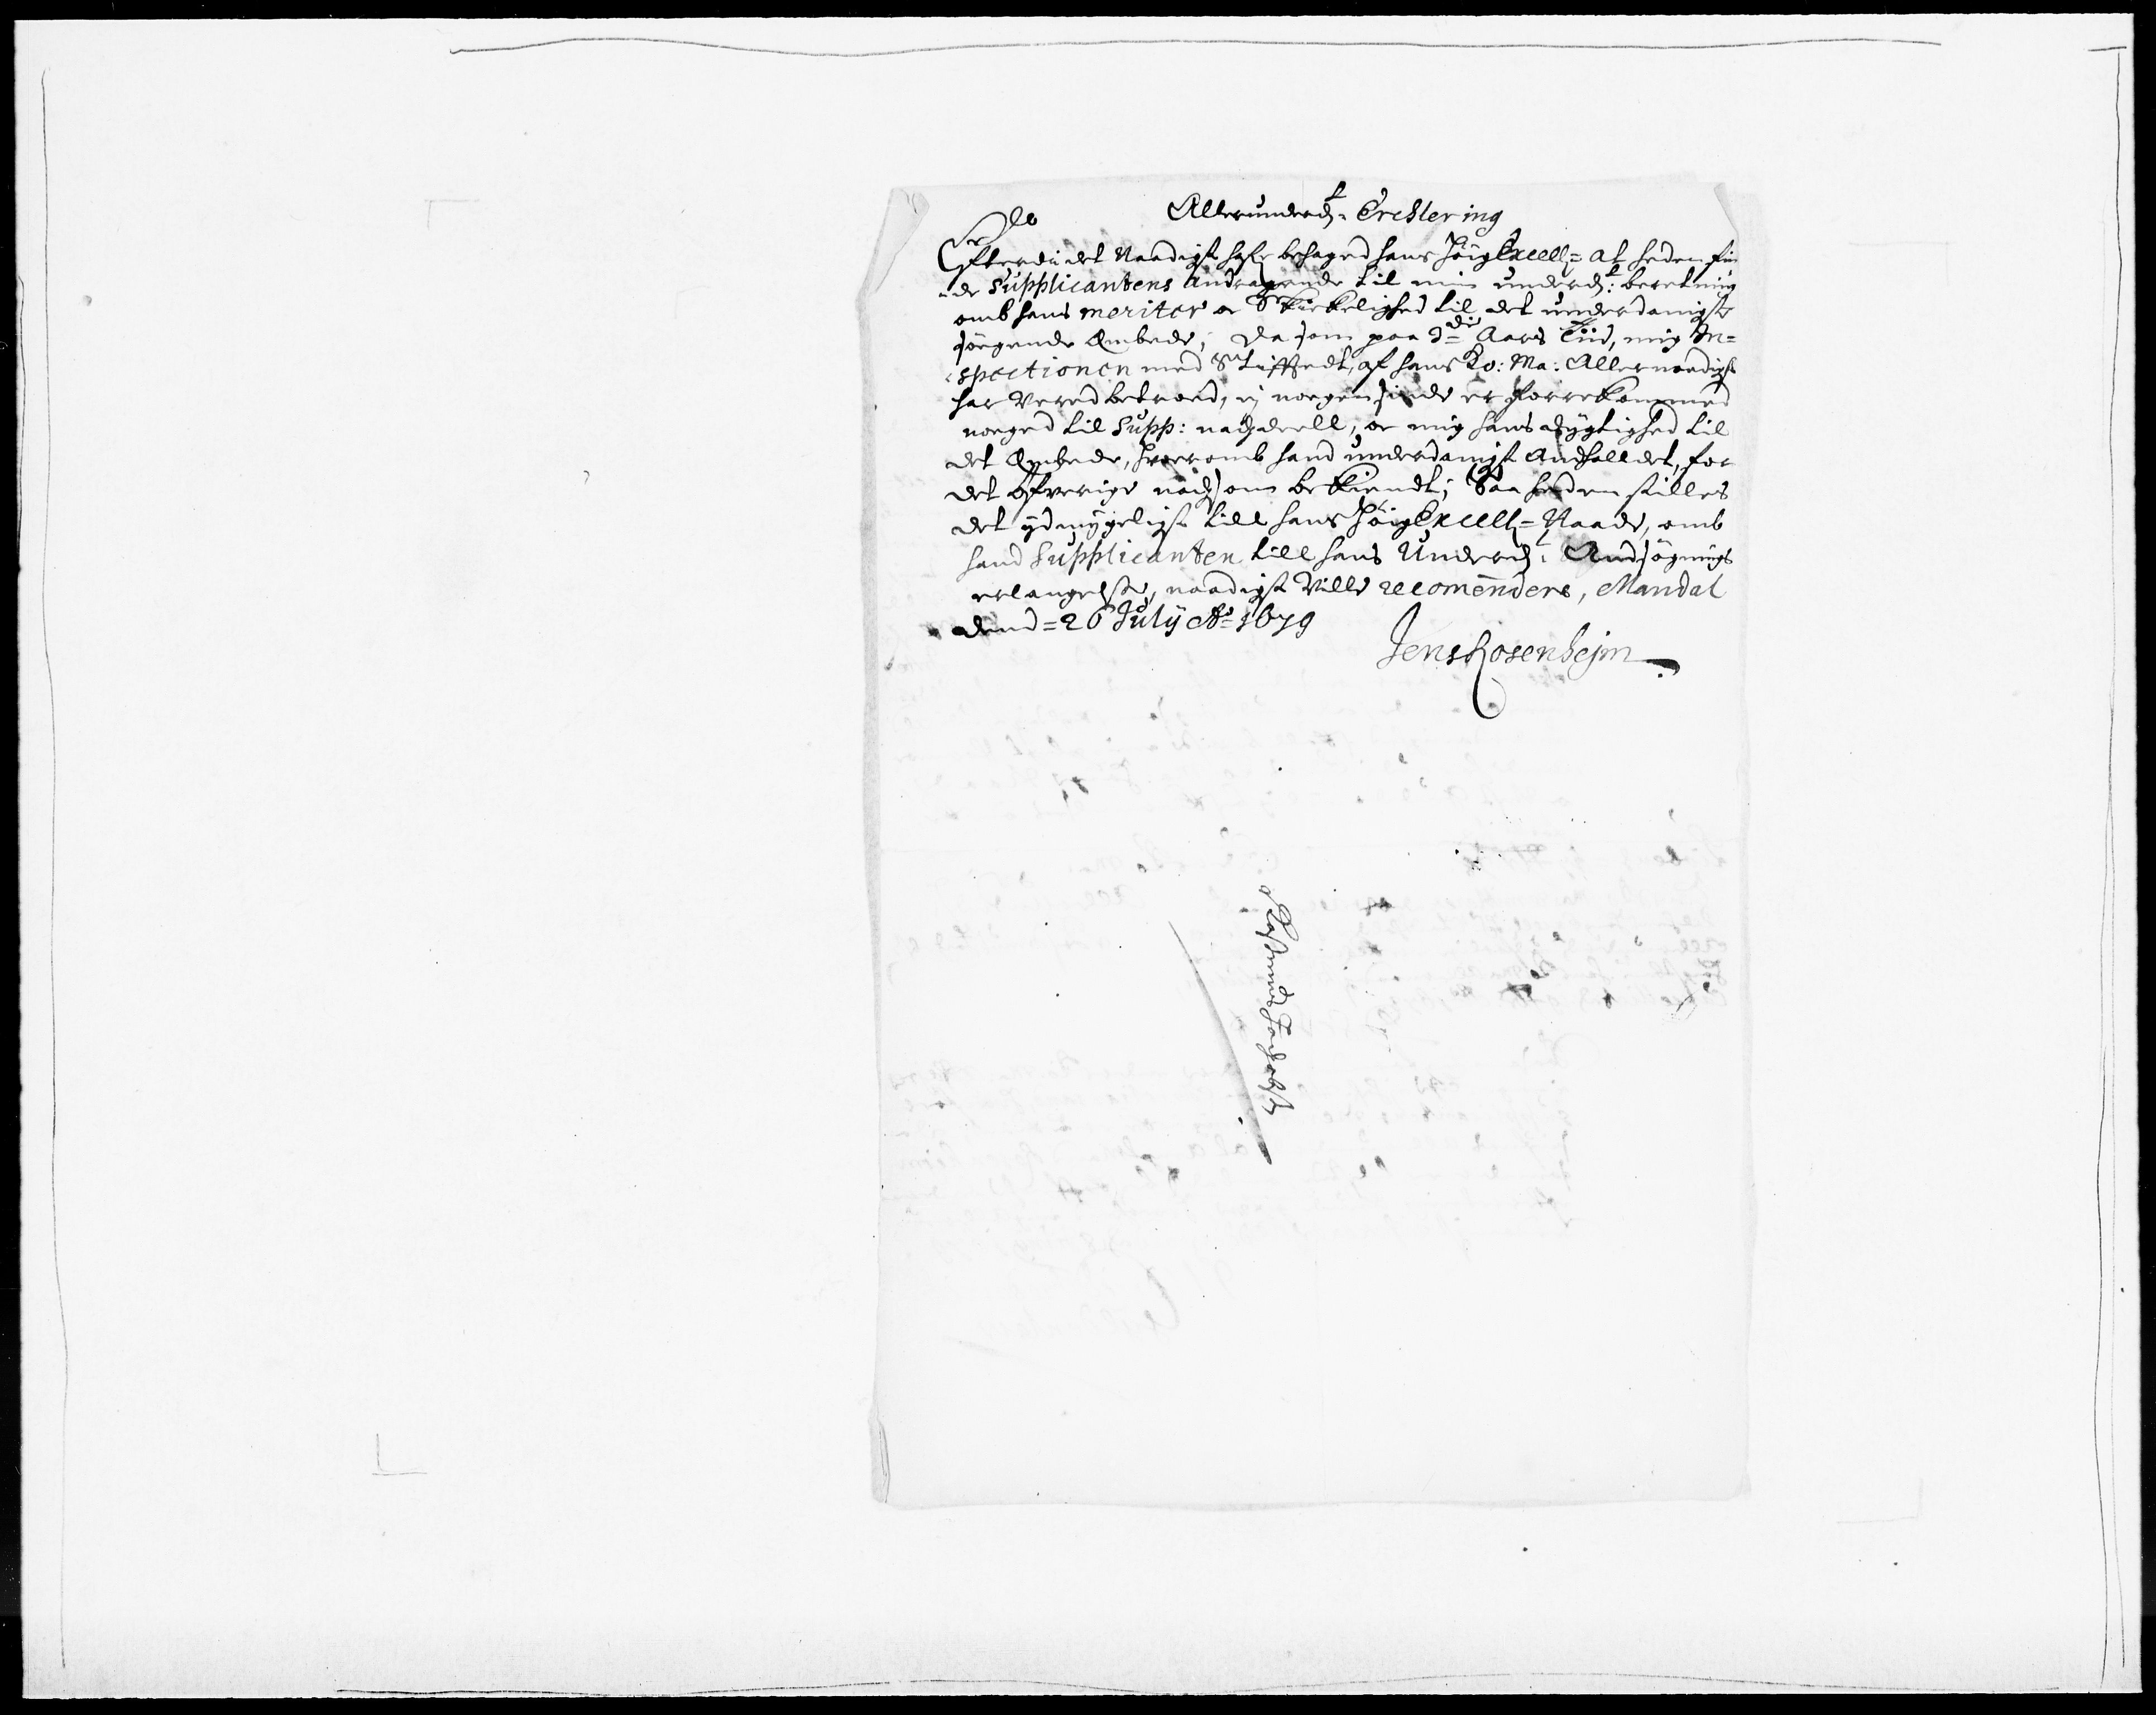 Allerunderd:t Ercklering
Efterdi det Naadigst hafr behaged hans Høig Excell= at heden fin
=de Supplicantens andragende til min underd:t beretning
omb hans meriter oc Skickelighed til det underdanigste
søgende Embede; da som paa 3die Aars Tiid, mig In=
spectionen med Stifftedt, af hans Ko: Ma: Allernaadigst
har Vered betroed, ej nogensinde er forrekommed
noeged til Supp: nachdeell, oc mig hans dygtighed til
det Embede, hvoromb hand underdanigst Andholldet, for
det øfverige nochsom bekiendt; Saa heden stilles
det ydmygeligst till hans Høig Excell= Naade, omb
hand Supplicanten till hans Underd:t Andsøgnings
erlangelse, naadigst Ville recomendere, Mandal
dend= 26 July Ao= 1679
Jens Rosenheim